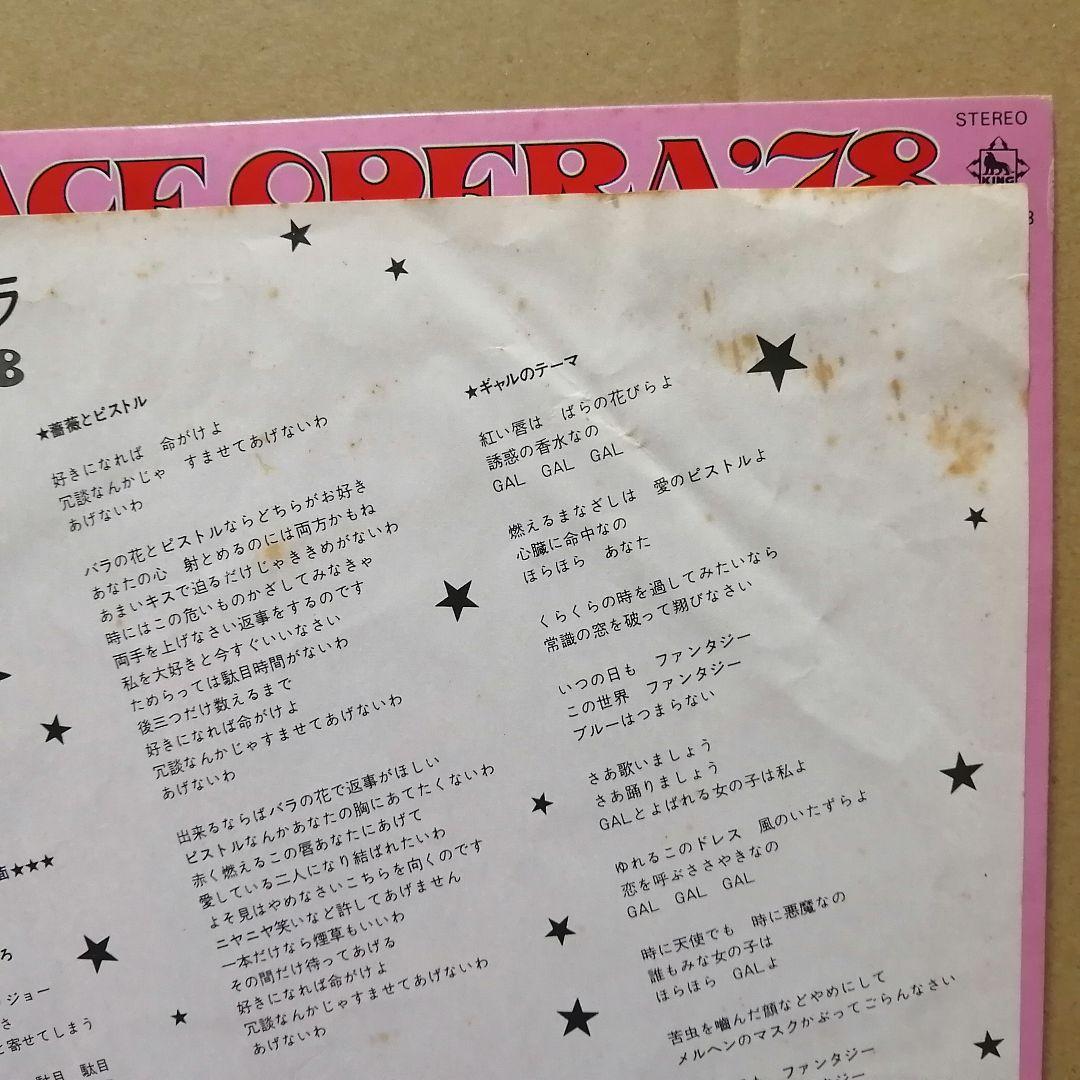 ACE OPERA'78
STEREO
KING
8
ラ
8
★薔薇とピストル
好きになれば 命がけよ
冗談なんかじゃ すませてあげないわ
あげないわ
バラの花とピストルならどちらがお好き
あなたの心 射とめるのには両方かもね
あまいキスで迫るだけじゃききめがないわ
時にはこの危いものかざしてみなきゃ
両手を上げなさい返事をするのです
私を大好きと今すぐいいなさい
ためらっては駄目時間がないわ
後三つだけ数えるまで
好きになれば命がけよ
冗談なんかじゃすませてあげないわ
あげないわ
出来るならばバラの花で返事がほしい
ピストルなんかあなたの胸にあてたくないわ
赤く燃えるこの唇あなたにあげて
愛している二人になり結ばれたいわ
よそ見はやめなさいこちらを向くのです
ニヤニヤ笑いなど許してあげません
一本だけなら煙草もいいわ
その間だけ待ってあげる
好きになれば命がけよ
冗談なんかじゃすませてあげないわ
あげないわ
★ギャルのテーマ
紅い唇は ばらの花びらよ
誘惑の香水なの
GAL GAL GAL
燃えるまなざしは 愛のピストルよ
心臓に命中なの
ほらほら あなた
くらくらの時を過してみたいなら
常識の窓を破って翔びなさい
いつの日も ファンタジー
この世界 ファンタジー
ブルーはつまらない
さあ歌いましょう
さあ踊りましょう
GALとよばれる女の子は私よ
ゆれるこのドレス 風のいたずらよ
恋を呼ぶささやきなの
GAL GAL GAL
時に天使でも 時に悪魔なの
誰もみな女の子は
ほらほら GALよ
苦虫を嚙んだ顔などやめにして
メルヘンのマスクかぶってごらんなさい
ファンタジー
画★★★
ろ
ジョー
さ
と寄せてしまう
駄目 駄目